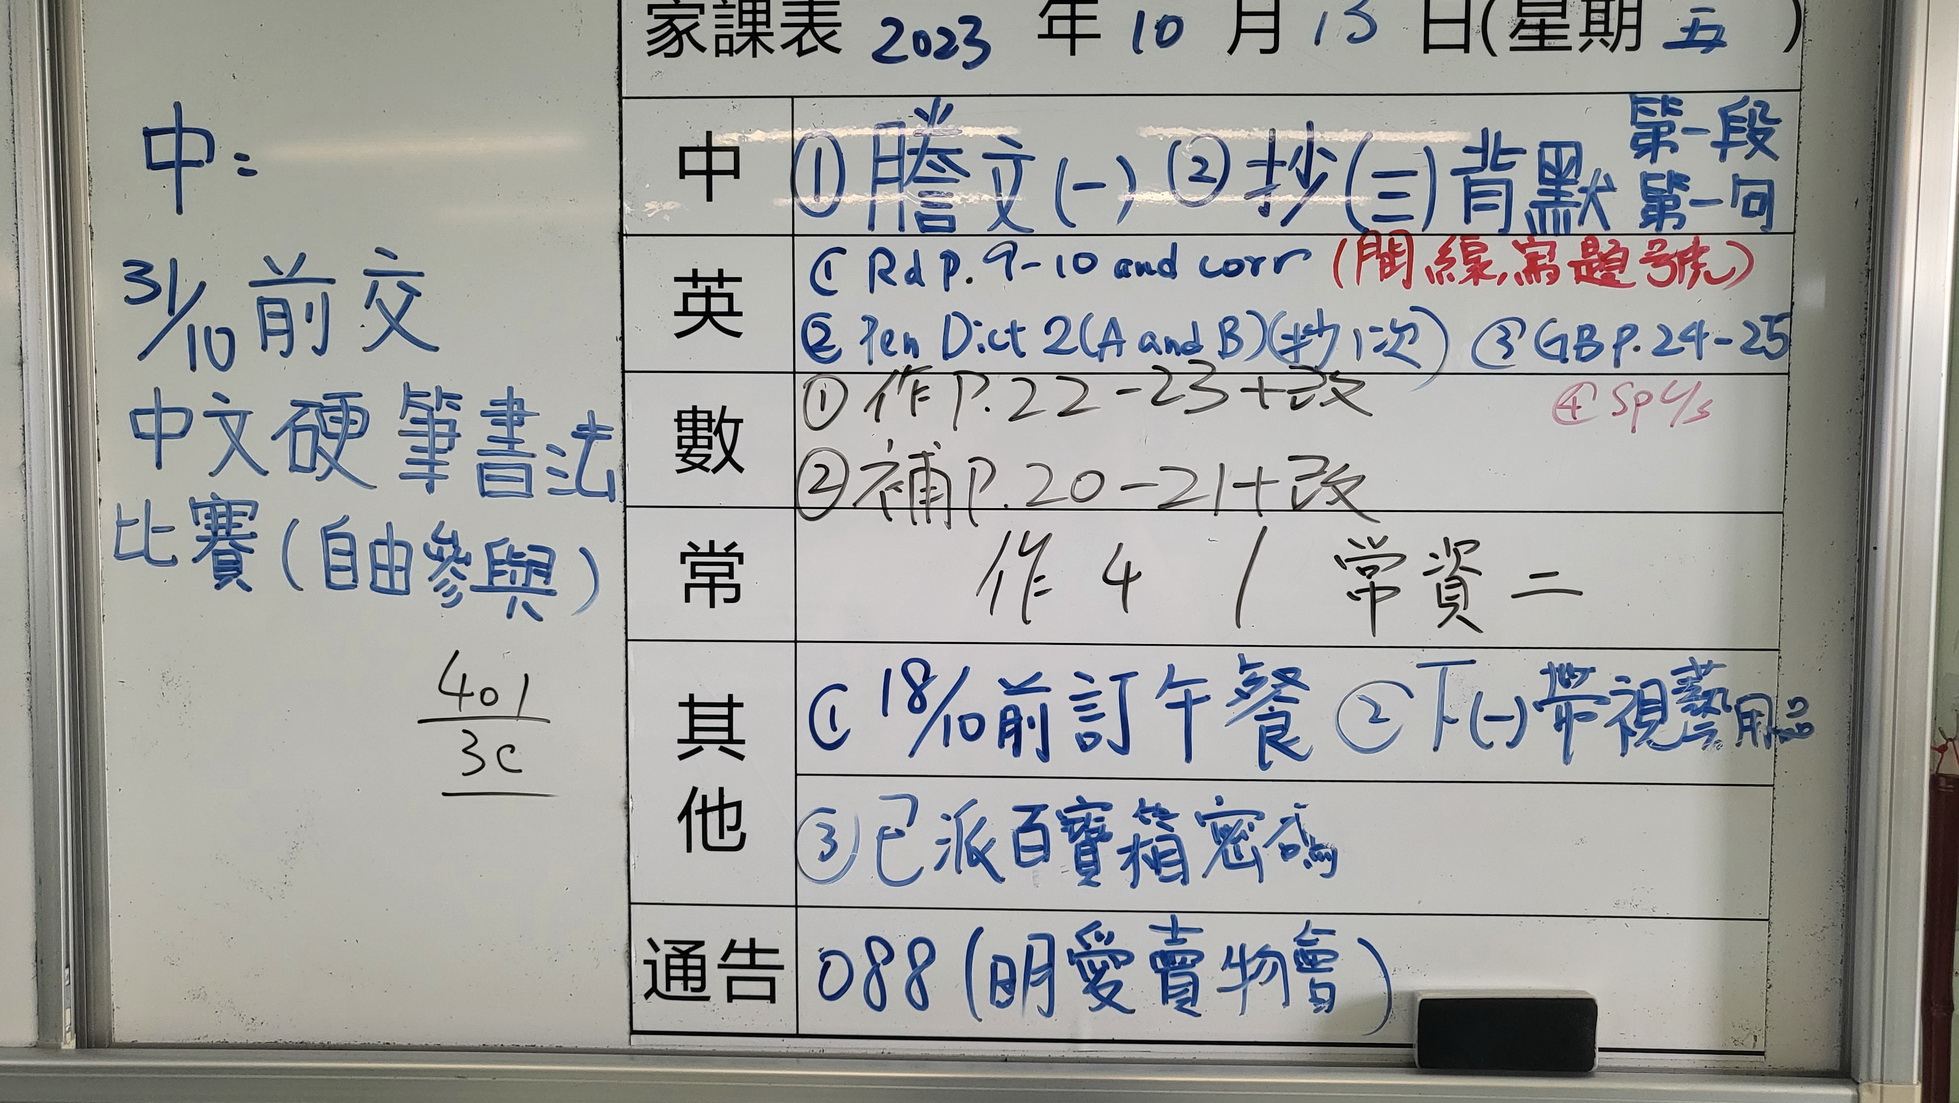 家課表 2023 年 10 月 13 日(星期 五 )
中:
31/10 前交
中文硬筆書法
比賽(自由參與)
401
3C
中 ①謄文(一) ②抄(三)背默 第一段
第一句
英 ① Rd P. 9-10 and corr (間線,寫題號)
② Pen Dict 2(A and B)(抄1次) ③ GB P. 24-25
數 ①作P.22-23+改 ④ Sp 4/3
②補P.20-21+改
常 作 4 / 常資二
其他 ① 18/10前訂午餐 ②下(一)帶視藝用品
③已派百寶箱密碼
通告 088 (明愛賣物會)